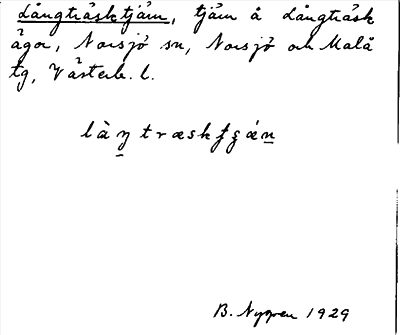 Långträsktjärn, tjärn å Långträsk
ägor, Norsjö sn, Norsjö och Malå
tg, Västerb. l.
B. Nygren 1929